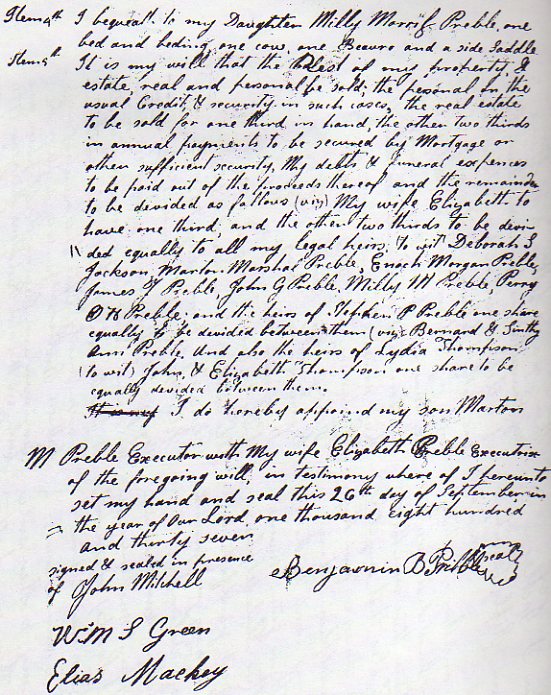 Item 4th I bequeath to my Daughter Milly Morriss Preble, one
bed and beding, one cow, one Beauro and a side Saddle
Item 5th It is my will that the balest of my property &
estate, real and personal be sold; the pesonal on the
usual Credit, & security in such cases, the real estate
to be sold for one third in hand, the other two thirds
in annual payments to be secured by Mortgage or
other sufficient security, My debts & funeral expences
to be paid out of the proceeds thereof and the remainder
to be devided as follows (viz) My wife Elizabeth to
have one third, and the other two thirds to be devi-
ded equally to all my legal heirs, to wit Deborah S
Jackson, Marton Marshal Preble, Enoch Morgan Preble,
James T Preble, John G Preble, Milly M Preble, Perry
O H Preble; and the heirs of Stephen P Preble one share
equally to be devided between them (viz) Bernard &
Ann Preble. And also the heirs of Lydia Thompson
(to wit) John, & Elizabeth Thompson one share to be
equally devided between them.
It is my I do hereby appoind my son Marton
M Preble Executor with My wife Elizabeth Preble Executrix
of the foregoing will, in testimony where of I hereunto
set my hand and seal this 26th day of September in
the year of Our Lord one thousand eight hundred
and thirty seven
signed & sealed in presence
of John Mitchell
Benjamin B Preble seal
Wm S Green
Elias Mackey